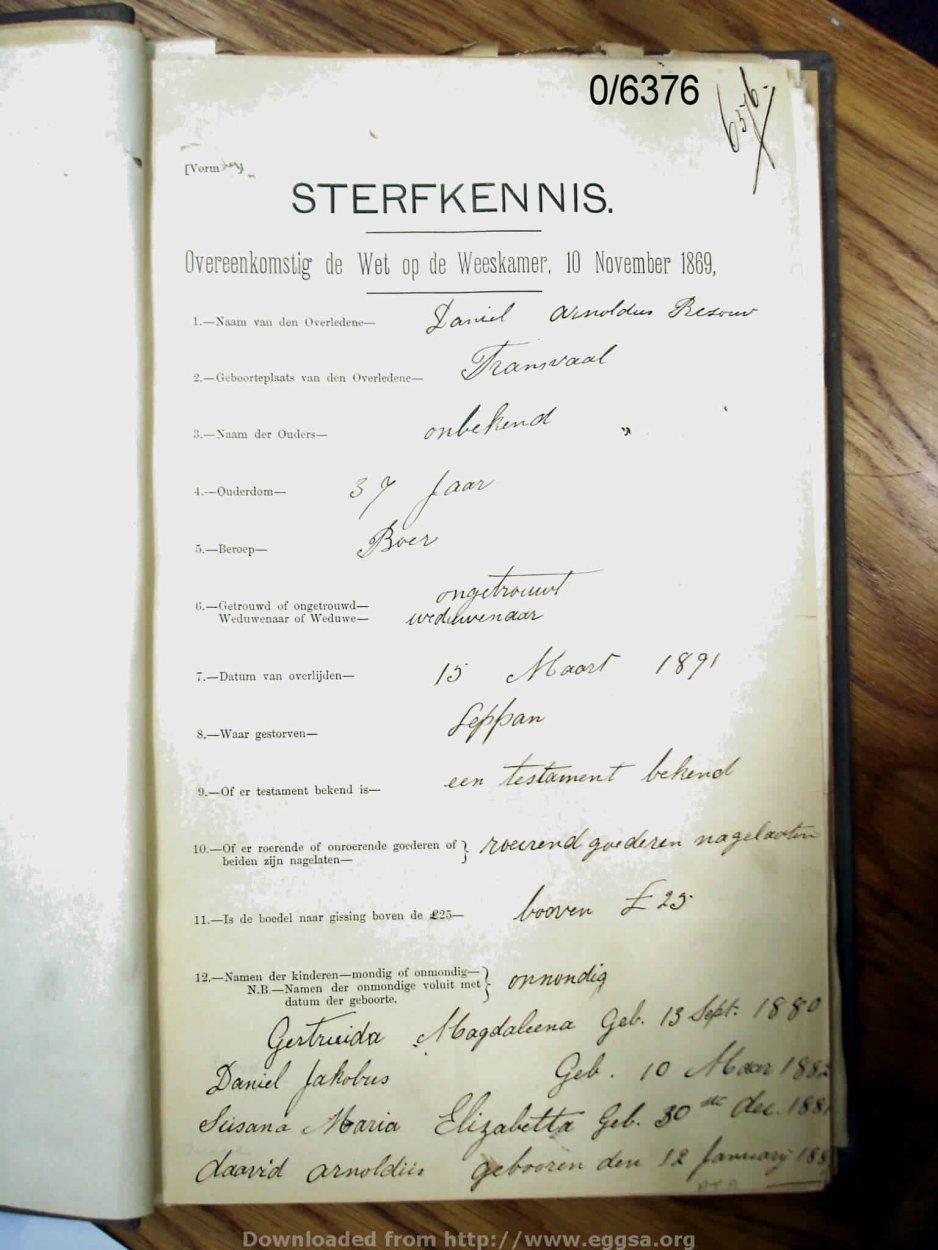 0/6376
656.
[Vorm
STERFKENNIS.
Overeenkomstig de Wet op de Weeskamer, 10 November 1869,
1.—Naam van den Overledene— Daniel Arnoldus Bezouw
2.—Geboorteplaats van den Overledene— Transvaal
3.—Naam der Ouders— onbekend "
4.—Ouderdom— 37 Jaar
5.—Beroep— Boer
6.—Getrouwd of ongetrouwd— ongetrouwt
Weduwenaar of Weduwe— weduwenaar
7.—Datum van overlijden— 15 Maart 1891
8.—Waar gestorven— Seppan
9.—Of er testament bekend is— een testament bekend
10.—Of er roerende of onroerende goederen of } roerend goederen nagelaaten
beiden zijn nagelaten—
11.—Is de boedel naar gissing boven de £25— booven £25
12.—Namen der kinderen—mondig of onmondig— } onmondig
N.B.—Namen der onmondige voluit met
datum der geboorte.
Gertruida Magdaleena Geb. 13 Sept. 1880
Daniel Jakobus Geb. 10 Maar 188
Susana Maria Elizabetta Geb. 30 dec. 188
daavid arnoldus gebooren den 12 January 188
Downloaded from http://www.eggsa.org